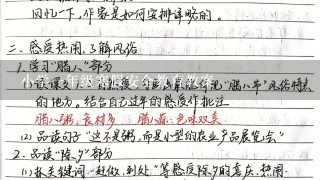 回忆一下，作家是如何安排详略的。
二、感受热闹，了解风俗
1. 学习“腊八”部分
的地方。结合自己过年的感受作批注
腊八粥：食材多 腊八蒜：色味双美
(2) 品读句子“这不是粥，而是小型的农业产品展览会”
2. 品读“除夕”部分
(1) 抓关键词“赶做、到处”等感受除夕的喜庆、热闹